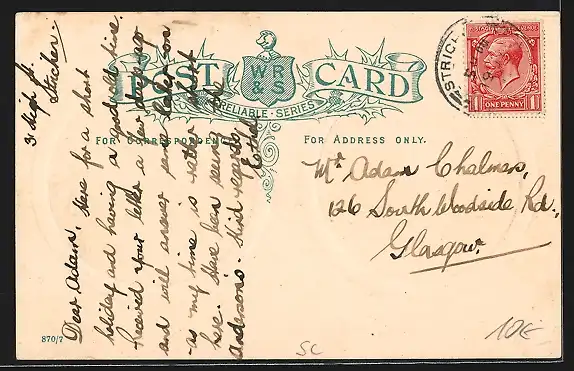 POST CARD
WR
& S
"RELIABLE" SERIES
FOR CORRESPONDENCE
FOR ADDRESS ONLY.
STRICHEN
POSTAGE REVENUE
ONE PENNY
3 High St.
Strichen.
Dear Adam, Here for a short
holiday and having a good time.
Received your letter a few days ago
and will answer same later on
as my time is rather short
here. Have been seeing the
Andersons. Kind regards,
Ethel
Mr. Adam Chalmers,
126 South Woodside Rd.,
Glasgow.
870/7
SC
10€